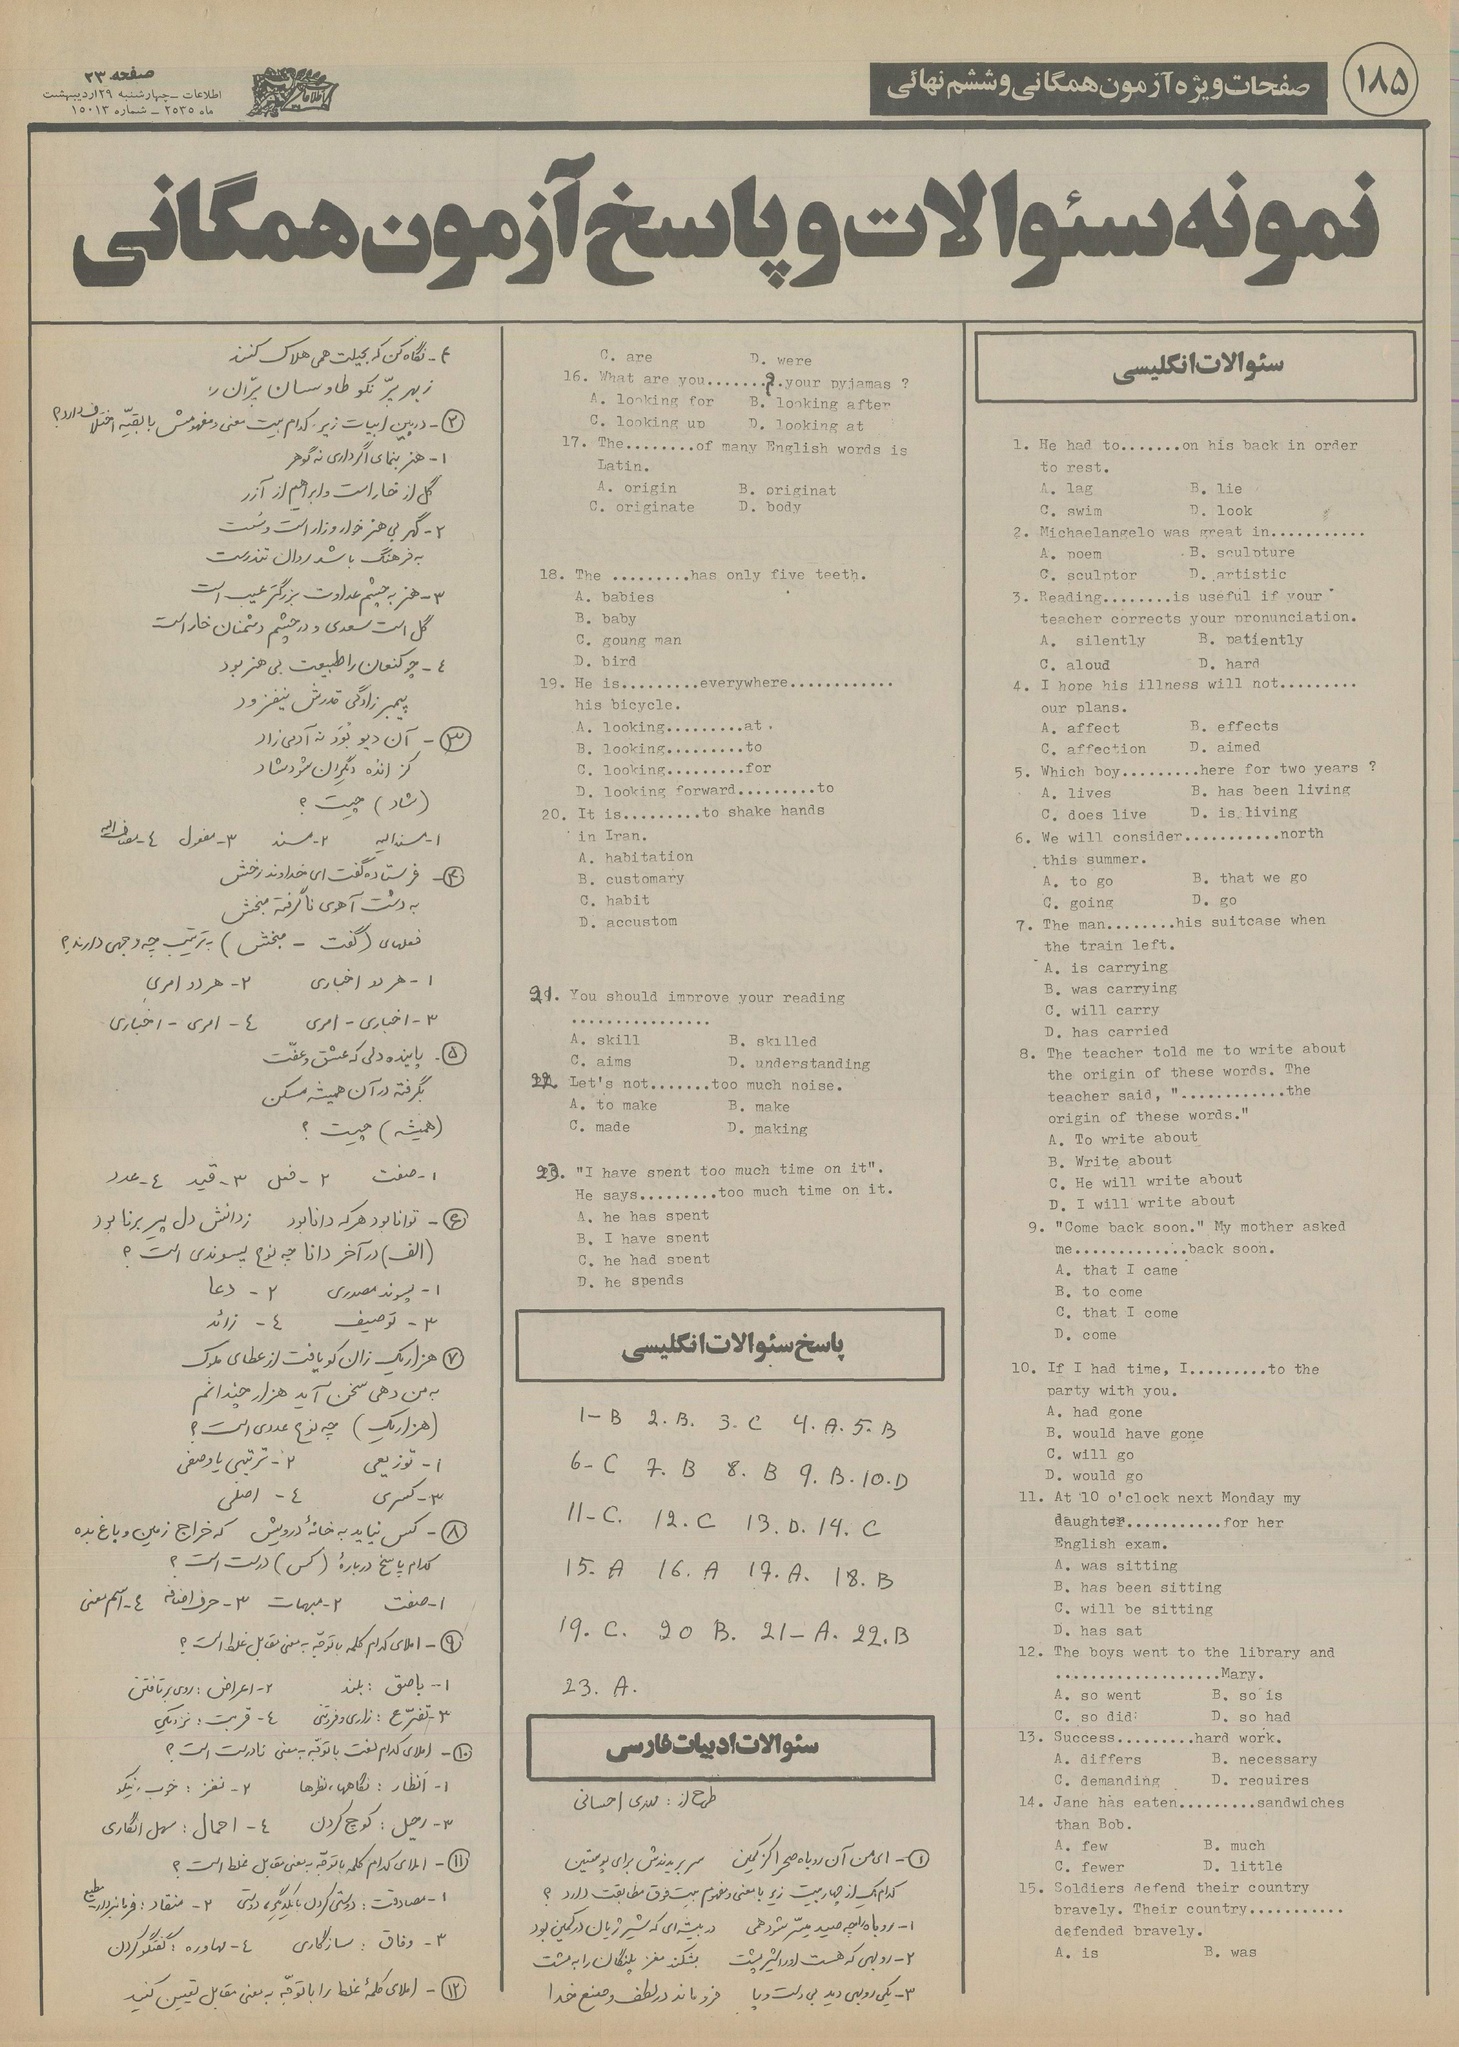 ۱۸۵
صفحات ویژه آزمون همگانی و ششم نهائی
صفحه ۲۳
اطلاعات – چهارشنبه ۲۹ اردیبهشت
ماه ۲۵۳۵ – شماره ۱۵۰۱۳
نمونه سئوالات و پاسخ آزمون همگانی
سئوالات انگلیسی
1. He had to.......on his back in order
to rest.
A. lag B. lie
C. swim D. look
2. Michaelangelo was great in...........
A. poem B. sculpture
C. sculptor D. artistic
3. Reading........is useful if your
teacher corrects your pronunciation.
A. silently B. patiently
C. aloud D. hard
4. I hope his illness will not.........
our plans.
A. affect B. effects
C. affection D. aimed
5. Which boy.........here for two years ?
A. lives B. has been living
C. does live D. is living
6. We will consider...........north
this summer.
A. to go B. that we go
C. going D. go
7. The man........his suitcase when
the train left.
A. is carrying
B. was carrying
C. will carry
D. has carried
8. The teacher told me to write about
the origin of these words. The
teacher said, "............the
origin of these words."
A. To write about
B. Write about
C. He will write about
D. I will write about
9. "Come back soon." My mother asked
me.............back soon.
A. that I came
B. to come
C. that I come
D. come
10. If I had time, I.........to the
party with you.
A. had gone
B. would have gone
C. will go
D. would go
11. At 10 o'clock next Monday my
daughter...........for her
English exam.
A. was sitting
B. has been sitting
C. will be sitting
D. has sat
12. The boys went to the library and
...................Mary.
A. so went B. so is
C. so did D. so had
13. Success.........hard work.
A. differs B. necessary
C. demanding D. requires
14. Jane has eaten.........sandwiches
than Bob.
A. few B. much
C. fewer D. little
15. Soldiers defend their country
bravely. Their country...........
defended bravely.
A. is B. was
C. are D. were
16. What are you.........your pyjamas ?
A. looking for B. looking after
C. looking up D. looking at
17. The........of many English words is
Latin.
A. origin B. originat
C. originate D. body
18. The .........has only five teeth.
A. babies
B. baby
C. goung man
D. bird
19. He is.........everywhere............
his bicycle.
A. looking.........at.
B. looking.........to
C. looking.........for
D. looking forward.........to
20. It is.........to shake hands
in Iran.
A. habitation
B. customary
C. habit
D. accustom
21. You should improve your reading
................
A. skill B. skilled
C. aims D. understanding
22. Let's not.......too much noise.
A. to make B. make
C. made D. making
23. "I have spent too much time on it".
He says.........too much time on it.
A. he has spent
B. I have spent
C. he had spent
D. he spends
پاسخ سئوالات انگلیسی
1- B 2. B. 3. C 4. A. 5. B
6- C 7. B 8. B 9. B. 10. D
11- C. 12. C 13. D. 14. C
15. A 16. A 17. A. 18. B
19. C. 20 B. 21- A. 22. B
23. A.
سئوالات ادبیات فارسی
طرح از : مهدی احسانی
۱- ای من آن روباه صحرا کز کمین سر بریدندش برای پوستین
کدام یک از چهار بیت زیر با معنی و مفهوم بیت فوق مطابقت دارد ؟
۱- روباه بچه صید میسر شود همی در بیشه‌ای که شیر ژیان در کمین بود
۲- روبهی که هست او را شیر پشت بشکند مغز پلنگان را به مشت
۳- یکی روبهی دید بی دست و پا فروماند در لطف و صنع خدا
۴- نگاه کن که بحیلت همی هلاک کنند
ز بهر پرّ نکو طاوسان پرّان را
۲- در بین ابیات زیر کدام بیت معنی و مفهومش با بقیّه اختلاف دارد؟
۱- هنر بنمای اگر داری نه گوهر
گل از خار است و ابراهیم از آزر
۲- گهر بی هنر خوار و زار است و سست
به فرهنگ باشد روان تندرست
۳- هنر به چشم عداوت بزرگتر عیب است
گل است سعدی و در چشم دشمنان خار است
۴- چو کنعان را طبیعت بی هنر بود
پیمبر زادگی قدرش نیفزود
۳- آن دیو بُوَد نه آدمی زاد
کز انده دگران شود شاد
(شاد) چیست ؟
۱- مسندالیه ۲- مسند ۳- مفعول ۴- مضاف‌الیه
۴- فرستاده گفت ای خداوند رخش
به دشت آهوی ناگرفته مبخش
فعلهای (گفت - مبخش) به ترتیب چه وجهی دارند؟
۱- هر دو اخباری ۲- هر دو امری
۳- اخباری - امری ۴- امری - اخباری
۵- پاینده دلی که عشق و عفّت
بگرفته در آن همیشه مسکن
(همیشه) چیست ؟
۱- صفت ۲- فعل ۳- قید ۴- عدد
۶- توانا بود هر که دانا بود ز دانش دل پیر برنا بود
(الف) در آخر دانا چه نوع پسوندی است ؟
۱- پسوند مصدری ۲- دعا
۳- توصیف ۴- زائد
۷- هزار یک زان کو یافت از عطای ملوک
به من دهی سخن آید هزار چندانم
(هزار یک) چه نوع عددی است ؟
۱- توزیعی ۲- ترتیبی یا وصفی
۳- کسری ۴- اصلی
۸- کس نیاید به خانهٔ درویش که خراج زمین و باغ بده
کدام پاسخ دربارهٔ (کس) درست است ؟
۱- صفت ۲- مبهمات ۳- حرف اضافه ۴- اسم معنی
۹- املای کدام کلمه با توجّه به معنی مقابل غلط است ؟
۱- باصق : بلند ۲- اعراض : روی برتافتن
۳- تضرّع : زاری و فروتنی ۴- قربت : نزدیکی
۱۰- املای کدام لغت با توجّه به معنی نادرست است ؟
۱- انظار : نگاهها، نظرها ۲- نغز : خوب، نیکو
۳- رحیل : کوچ کردن ۴- احمال : سهل انگاری
۱۱- املای کدام کلمه با توجّه به معنی مقابل غلط است ؟
۱- مصادقت : دوستی کردن با یکدیگر، دوستی ۲- منقاد : فرمانبردار، مطیع
۳- وفاق : سازگاری ۴- مهاوره : گفتگو کردن
۱۲- املای کلمهٔ غلط را با توجّه به معنی مقابل تعیین کنید